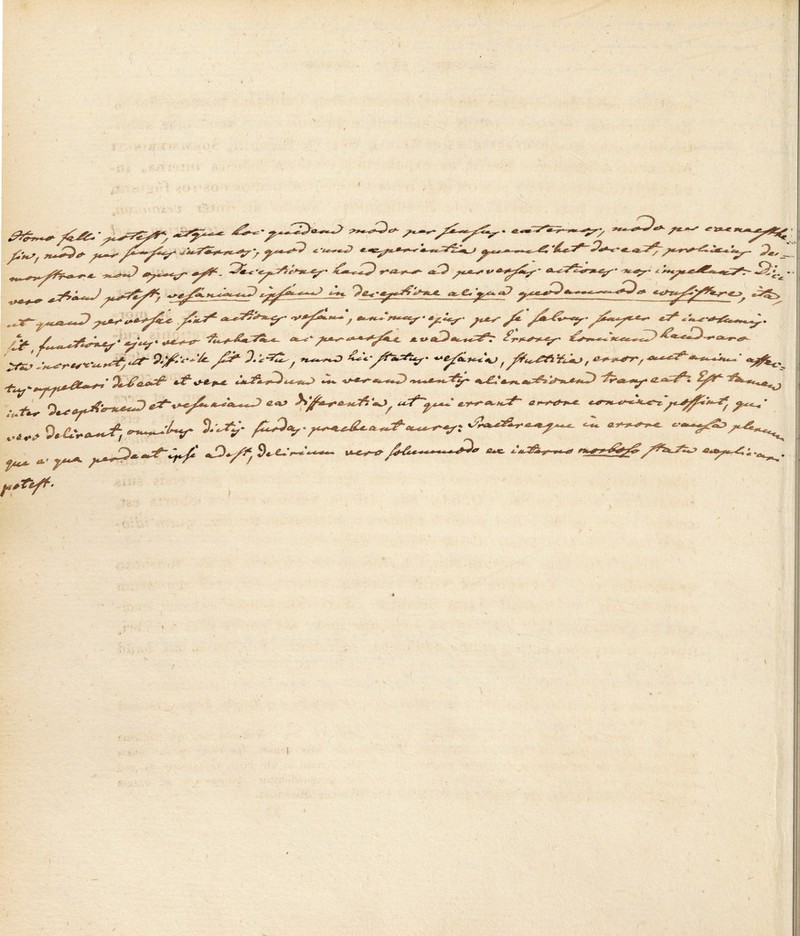 Homo falli potest, atque hoc quidem modo per sensus externos, modo per coenaesthe-
sin, modo per sensus internos, quod cum experientia quamlibet doceat, prolixius de-
monstrare non opus est. Deceptiones haud raro ad perversas actiones nos impellunt. Dici
vero etiam potest, vesaniam ipsam in deceptione aliqua quodammodo consistere, ita,
ut quam perversae sint actiones vesani, animus ejus per se salvus semper et incolumis
sit, functiones ejus vero turbatae ac perversae evadant. Errores hominum haud raro
ita increscunt, ut dificile sit dictu, num hic status vesania, stultitia, error, aut animi affec-
tus appellari debeat et vere interdum in veram mentis alienationem transeat. Est tamen
inter deceptionem et vesaniam ea differentia, ut qui errant errore convinci possint, qui
vero delirant, omnibus dictis surdas praebeant aures. Praetereaque in errore causa plerum
que a qua pendeat ipsi adest, delirium vero solummodo ex interno morboso statu explicari
potest.